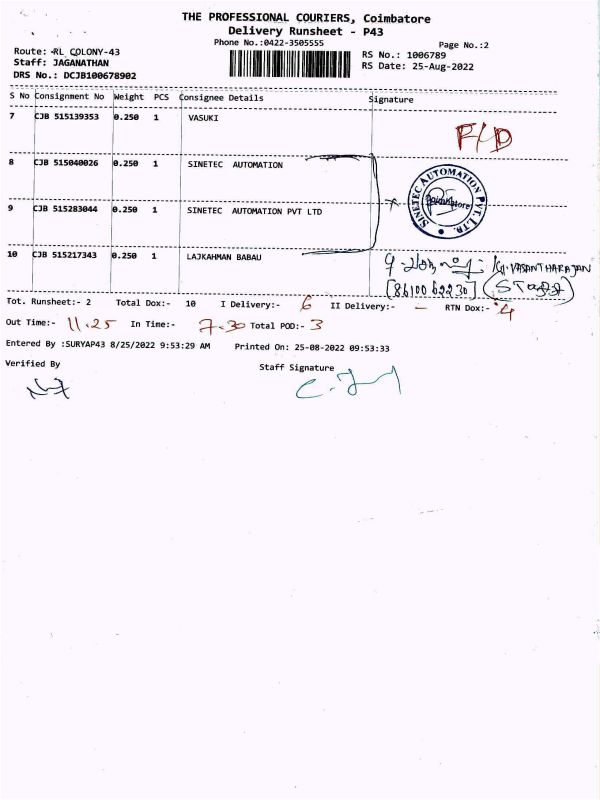 THE PROFESSIONAL COURIERS, Coimbatore
Delivery Runsheet - P43
Phone No.:0422-3505555
Page No.:2
Route: RL COLONY-43
RS No.: 1006789
Staff: JAGANATHAN
RS Date: 25-Aug-2022
DRS No.: DCJB100678902
S No Consignment No Weight PCS Consignee Details Signature
7 CJB 515139353 0.250 1 VASUKI
8 CJB 515040026 0.250 1 SINETEC AUTOMATION
SINETEC AUTOMATION PVT. LTD.
Coimbatore
9 CJB 515283044 0.250 1 SINETEC AUTOMATION PVT LTD
10 CJB 515217343 0.250 1 LAJKAHMAN BABAU
VASANTHARAJAN
Tot. Runsheet:- 2 Total Dox:- 10 I Delivery:- 6 II Delivery:- - RTN Dox:- 4
Out Time:- 11.25 In Time:- 7.30 Total POD:- 3
Entered By :SURYAP43 8/25/2022 9:53:29 AM Printed On: 25-08-2022 09:53:33
Verified By
Staff Signature